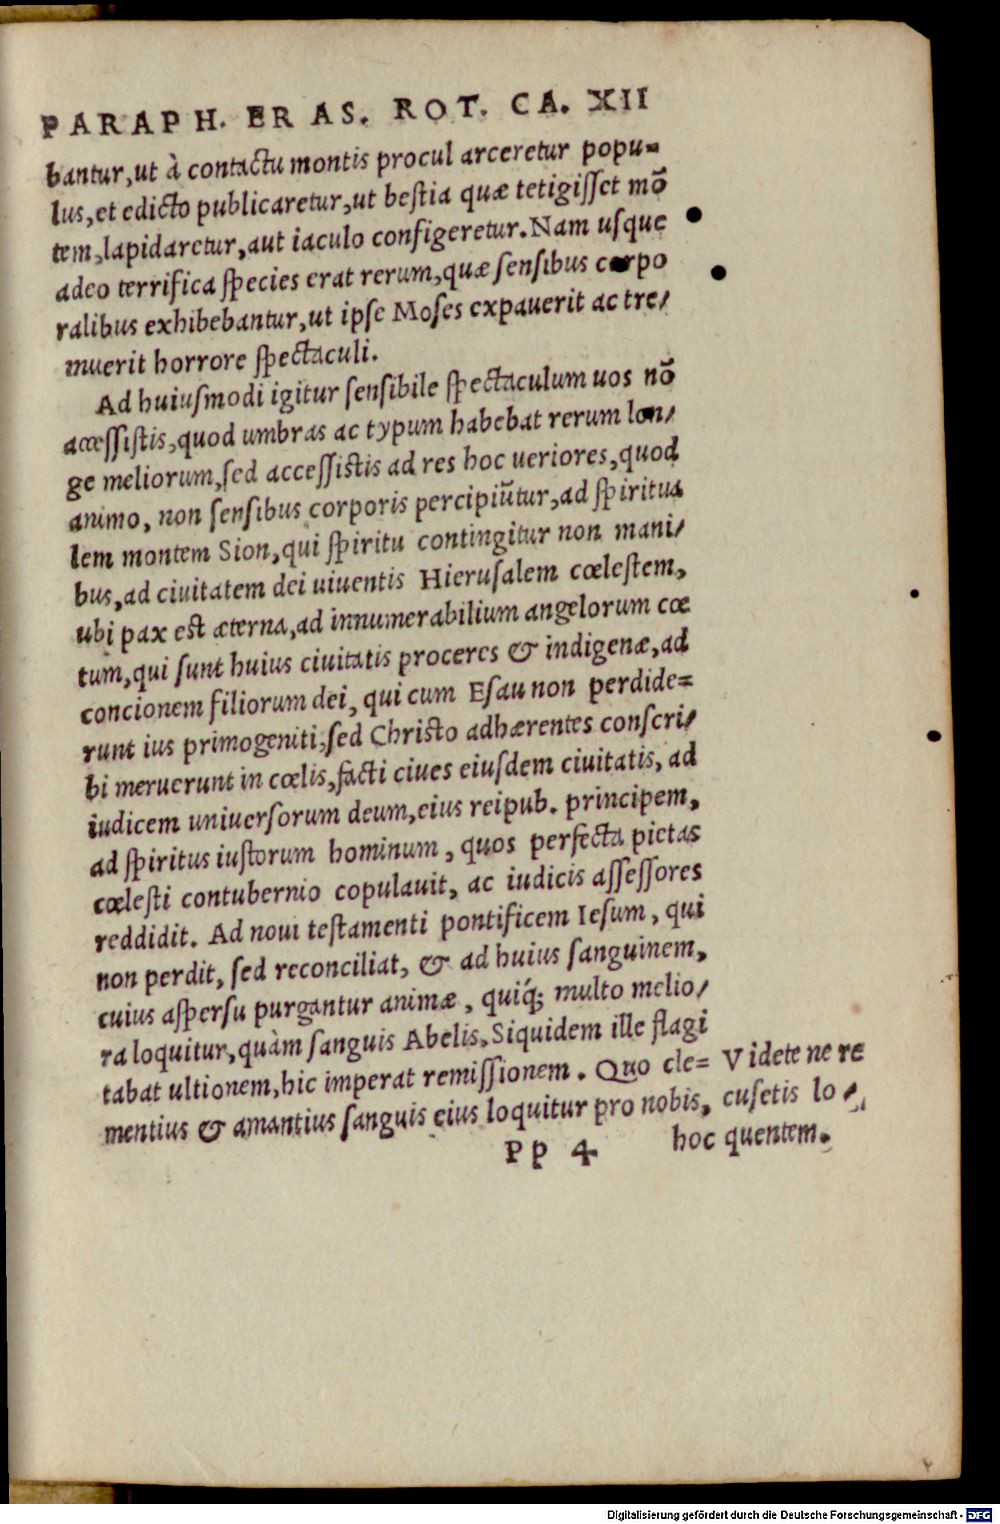 PARAPH. ERAS. ROT. CA. XII
bantur,ut à contactu montis procul arceretur popu=
lus,et edicto publicaretur,ut bestia quæ tetigisset mō
tem,lapidaretur,aut iaculo configeretur.Nam usque
adeo terrifica species erat rerum,quæ sensibus corpo
ralibus exhibebantur,ut ipse Moses expauerit ac tre/
muerit horrore spectaculi.
Ad huiusmodi igitur sensibile spectaculum uos nō
accessistis,quod umbras ac typum habebat rerum lon/
ge meliorum,sed accessistis ad res hoc ueriores,quod
animo, non sensibus corporis percipiūtur,ad spiritua
lem montem Sion,qui spiritu contingitur non mani/
bus,ad ciuitatem dei uiuentis Hierusalem cœlestem,
ubi pax est æterna,ad innumerabilium angelorum cœ
tum,qui sunt huius ciuitatis proceres & indigenæ,ad
concionem filiorum dei, qui cum Esau non perdide=
runt ius primogeniti,sed Christo adhærentes conscri/
bi meruerunt in cœlis,facti ciues eiusdem ciuitatis, ad
iudicem uniuersorum deum,eius reipub. principem,
ad spiritus iustorum hominum, quos perfecta pietas
cœlesti contubernio copulauit, ac iudicis assessores
reddidit. Ad noui testamenti pontificem Iesum, qui
non perdit, sed reconciliat, & ad huius sanguinem,
cuius aspersu purgantur animæ, quiq́; multo melio/
ra loquitur,quàm sanguis Abelis.Siquidem ille flagi
tabat ultionem,hic imperat remissionem. Quo cle=
mentius & amantius sanguis eius loquitur pro nobis,
Videte ne re
cusetis lo/
quentem.
Pp 4
hoc
Digitalisierung gefördert durch die Deutsche Forschungsgemeinschaft - DFG